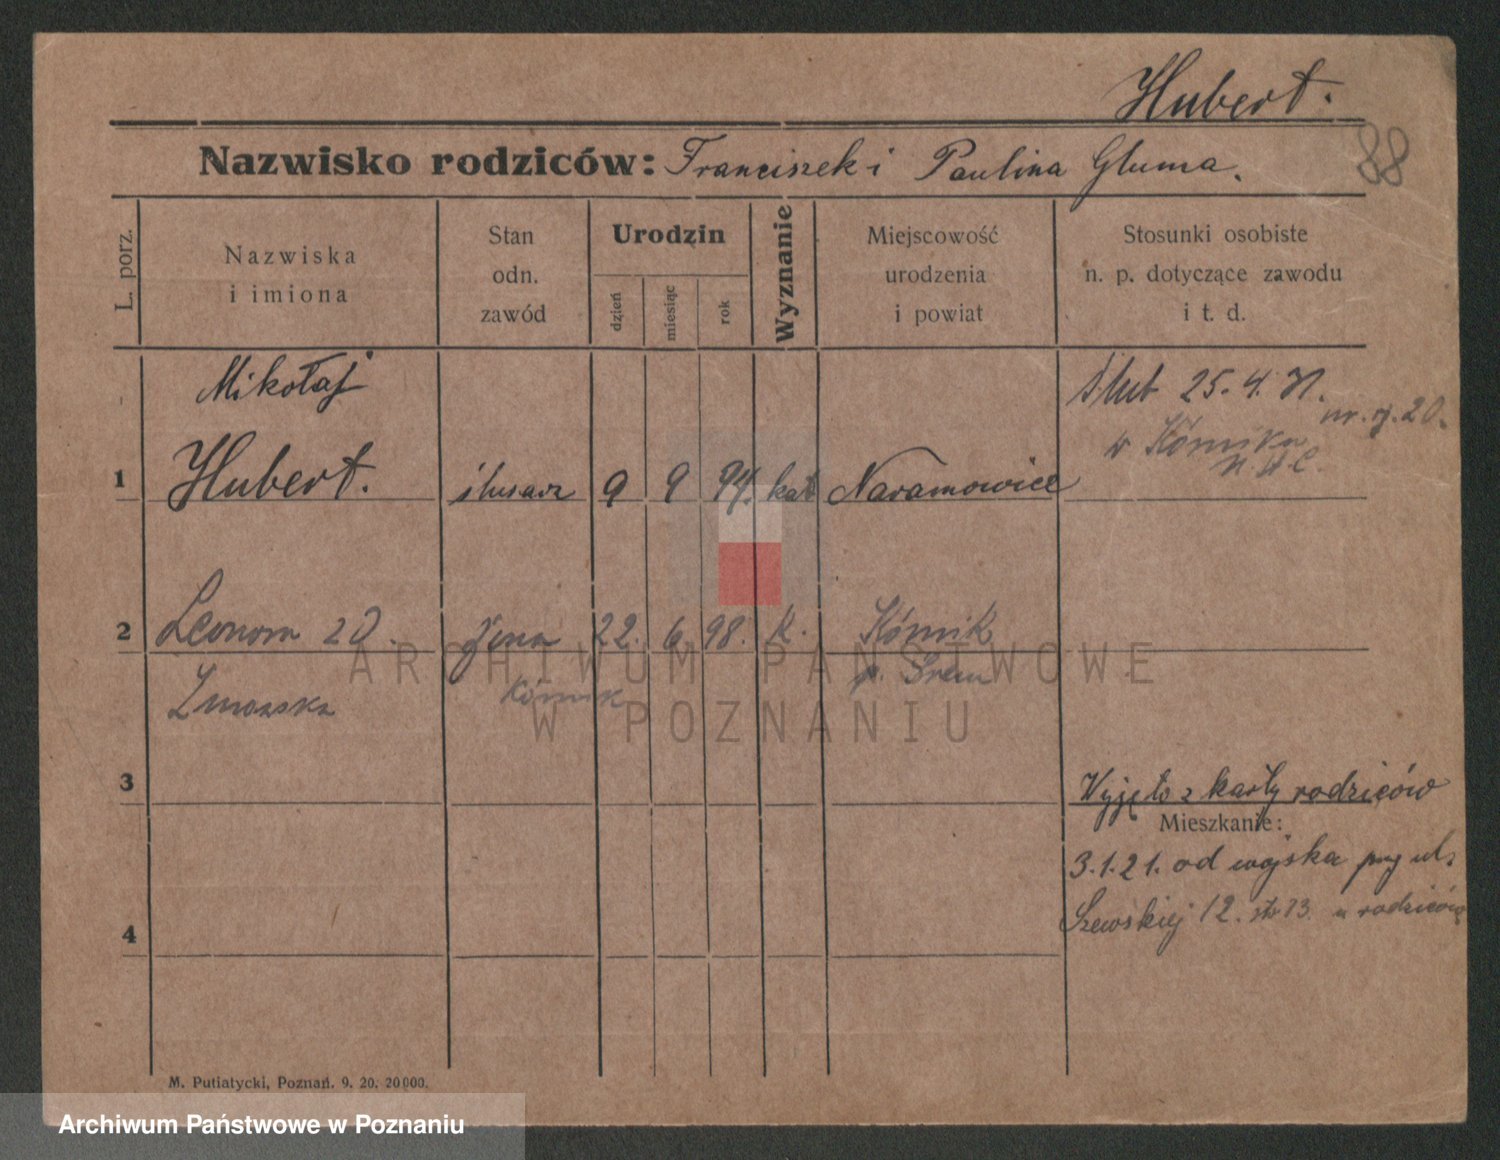 Hubert.
88
Nazwisko rodziców: Franciszek i Paulina Gluma.
L. porz.
Nazwiska
i imiona
Stan
odn.
zawód
Urodzin
dzień
miesiąc
rok
Wyznanie
Miejscowość
urodzenia
i powiat
Stosunki osobiste
n. p. dotyczące zawodu
i t. d.
Mikołaj
ślub 25.4.21.
nr. rj. 20.
w Kórniku
1 Hubert. ślusarz 9 9 94. kat Naramowice
2 Leonora zd. żona 22. 6 98. k. Kórnik
p. Śrem
Kórnik
3
Wyjęto z karty rodziców
Mieszkanie:
3.1.21. od wojska przy ul.
Szewskiej 12. str 13. u rodziców
4
M. Putiatycki, Poznań. 9. 20. 20000.
ARCHIWUM PAŃSTWOWE
W POZNANIU
Archiwum Państwowe w Poznaniu